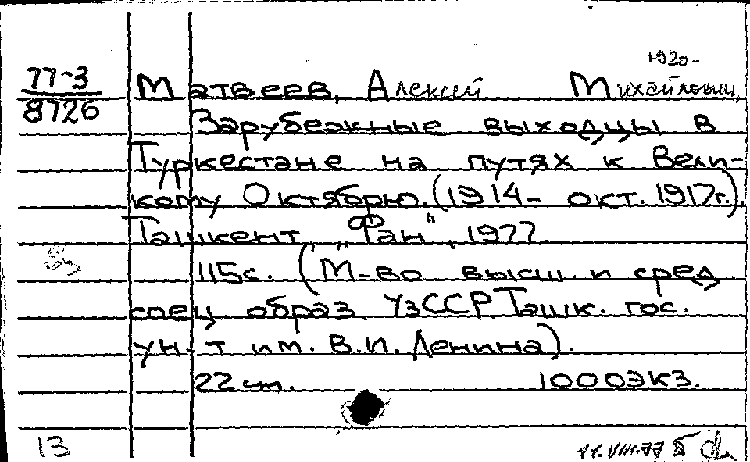 1920-
77-3
8726
Матвеев, Алексей Михайлович,
Зарубежные выходцы в
Туркестане на путях к Вели-
кому Октябрю. (1914- окт. 1917г.).
Ташкент, „Фан", 1977.
115с. (М-во высш. и сред.
спец. образ. УзССР. Ташк. гос.
ун-т им. В.И. Ленина).
22 см. 1000экз.
13